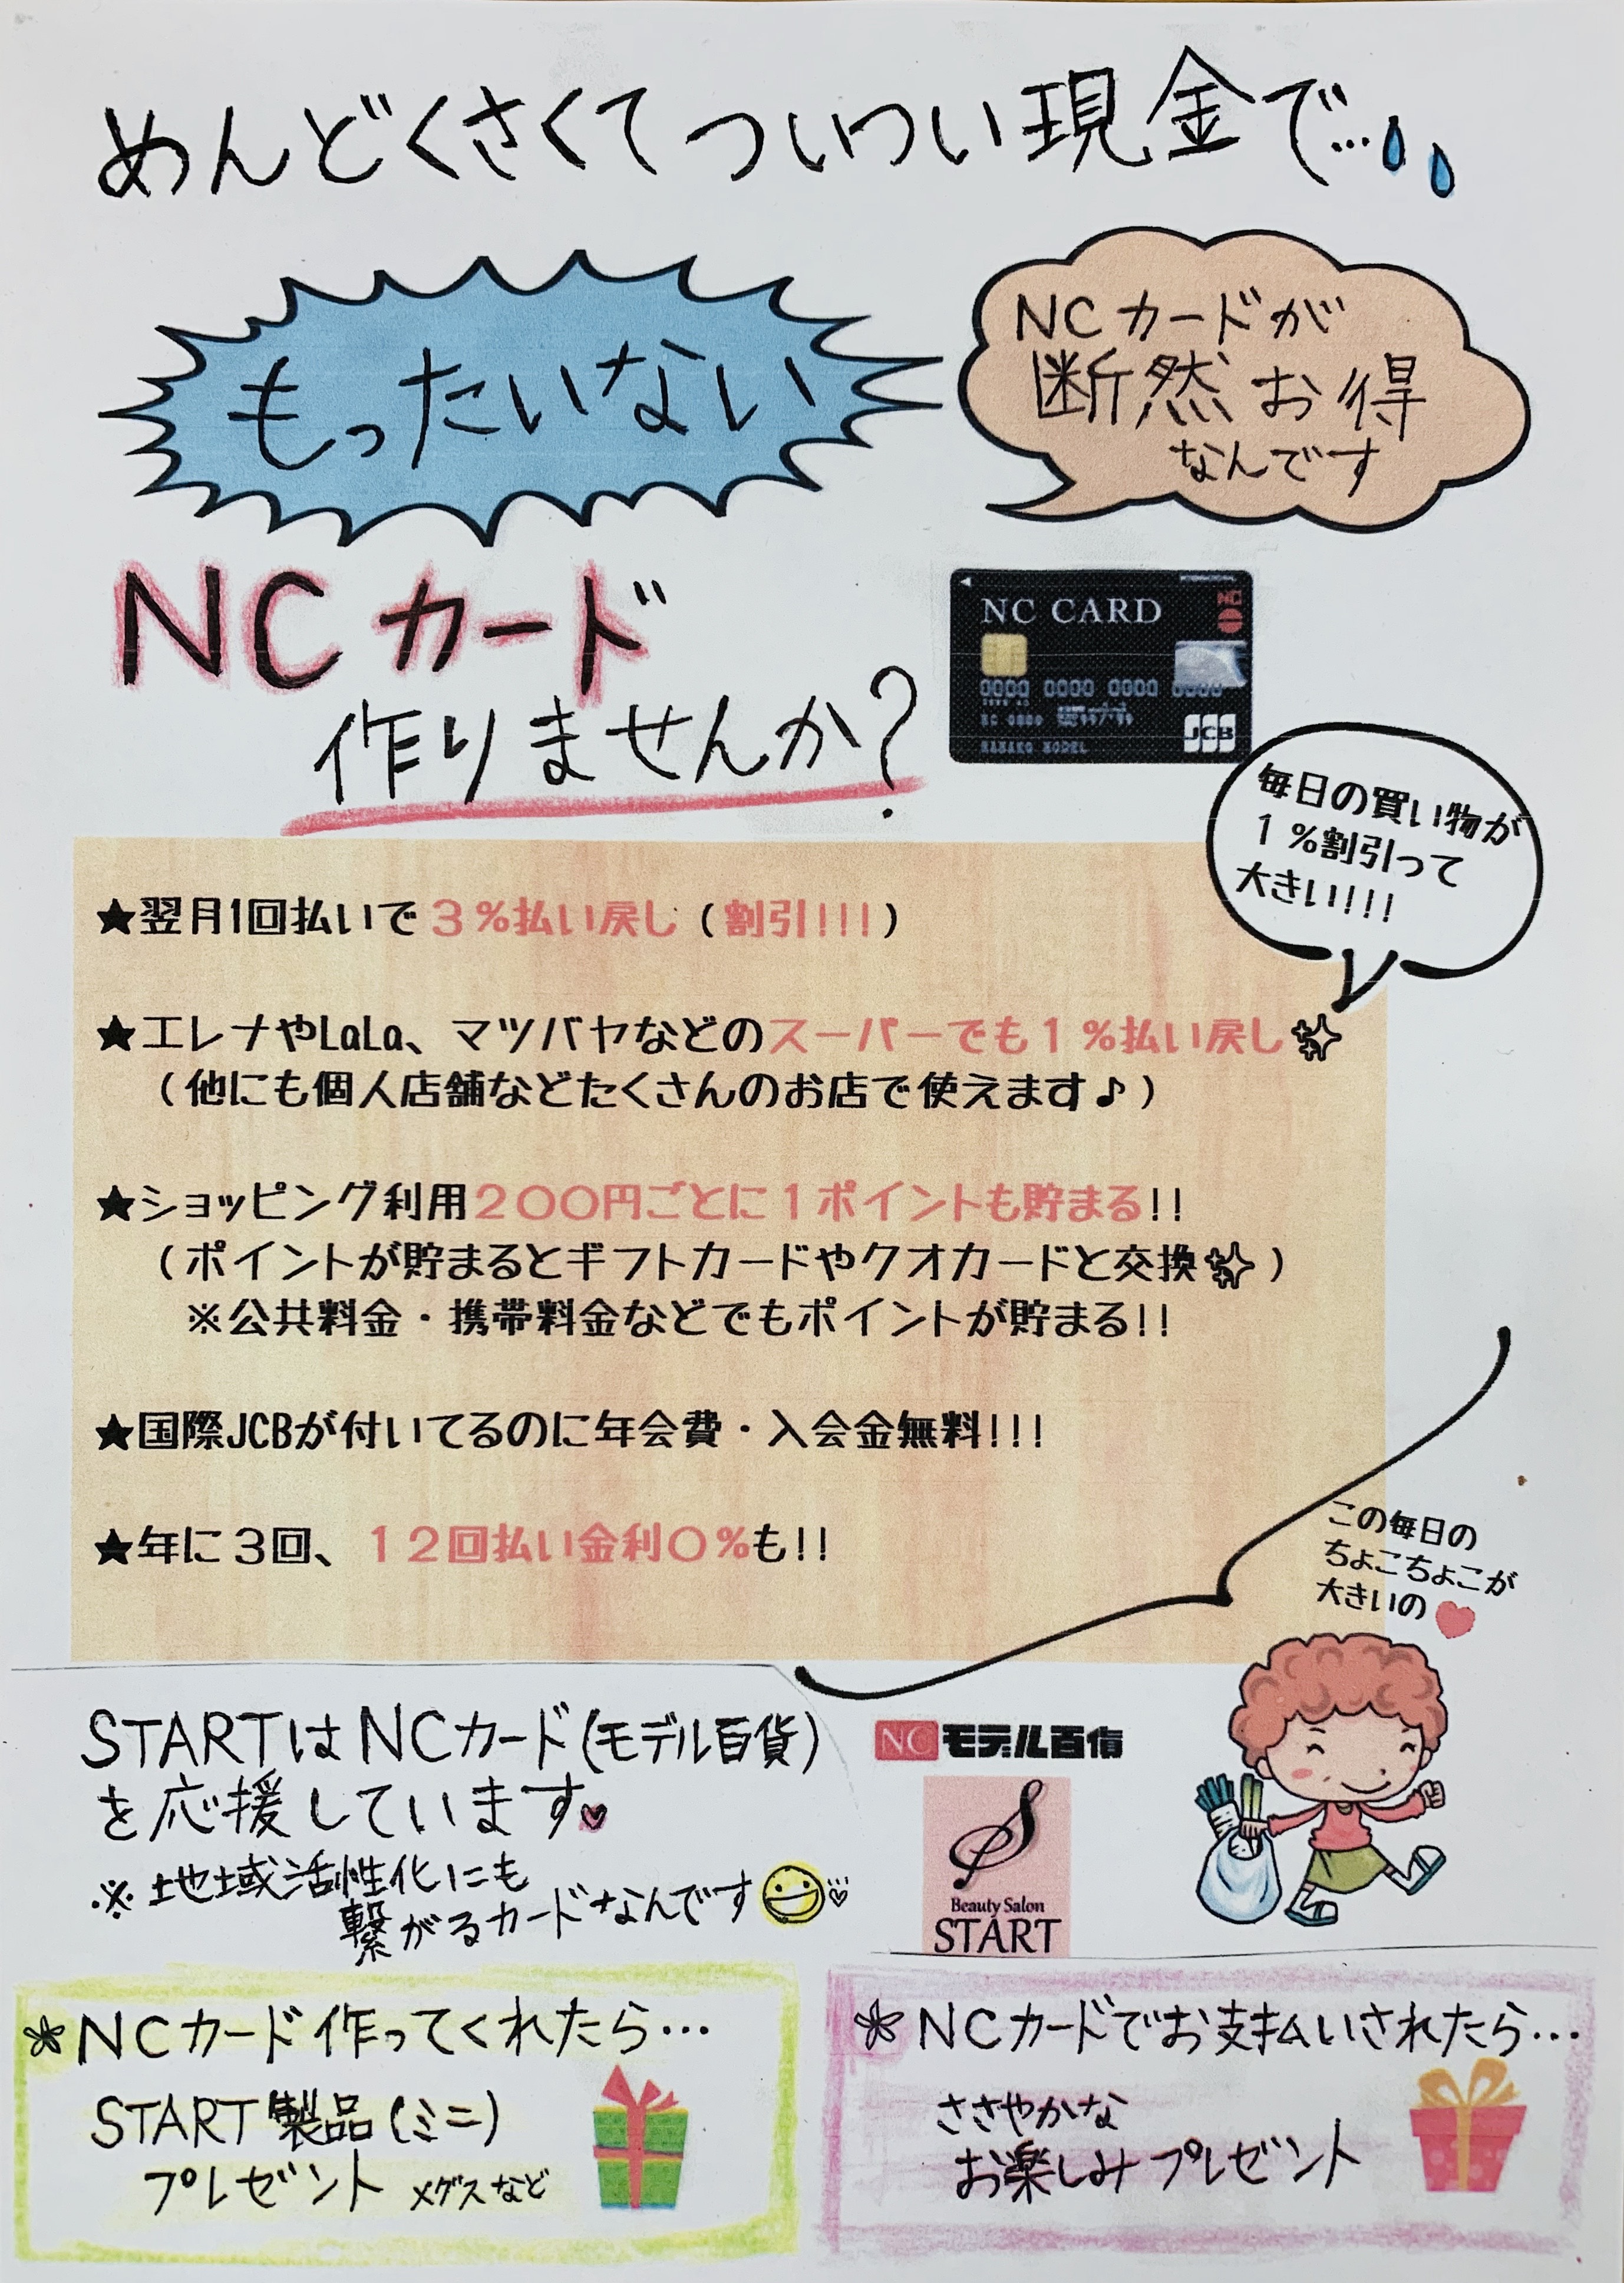 めんどくさくてついつい現金で…
もったいない
NCカードが
断然お得
なんです
NCカード
作りませんか?
NC CARD
NC
0000 0000 0000 0000
JCB
毎日の買い物が
1%割引って
大きい!!!
★翌月1回払いで3%払い戻し(割引!!!)
★エレナやLaLa、マツバヤなどのスーパーでも1%払い戻し
(他にも個人店舗などたくさんのお店で使えます♪)
★ショッピング利用200円ごとに1ポイントも貯まる!!
(ポイントが貯まるとギフトカードやクオカードと交換)
※公共料金・携帯料金などでもポイントが貯まる!!
★国際JCBが付いてるのに年会費・入会金無料!!!
★年に3回、12回払い金利0%も!!
この毎日の
ちょこちょこが
大きいの
STARTはNCカード(モデル百貨)
を応援しています
※地域活性化にも
繋がるカードなんです
NC モデル百貨
Beauty Salon
START
NCカード作ってくれたら…
START製品(ミニ)
プレゼント メグスなど
NCカードでお支払いされたら…
ささやかな
お楽しみプレゼント